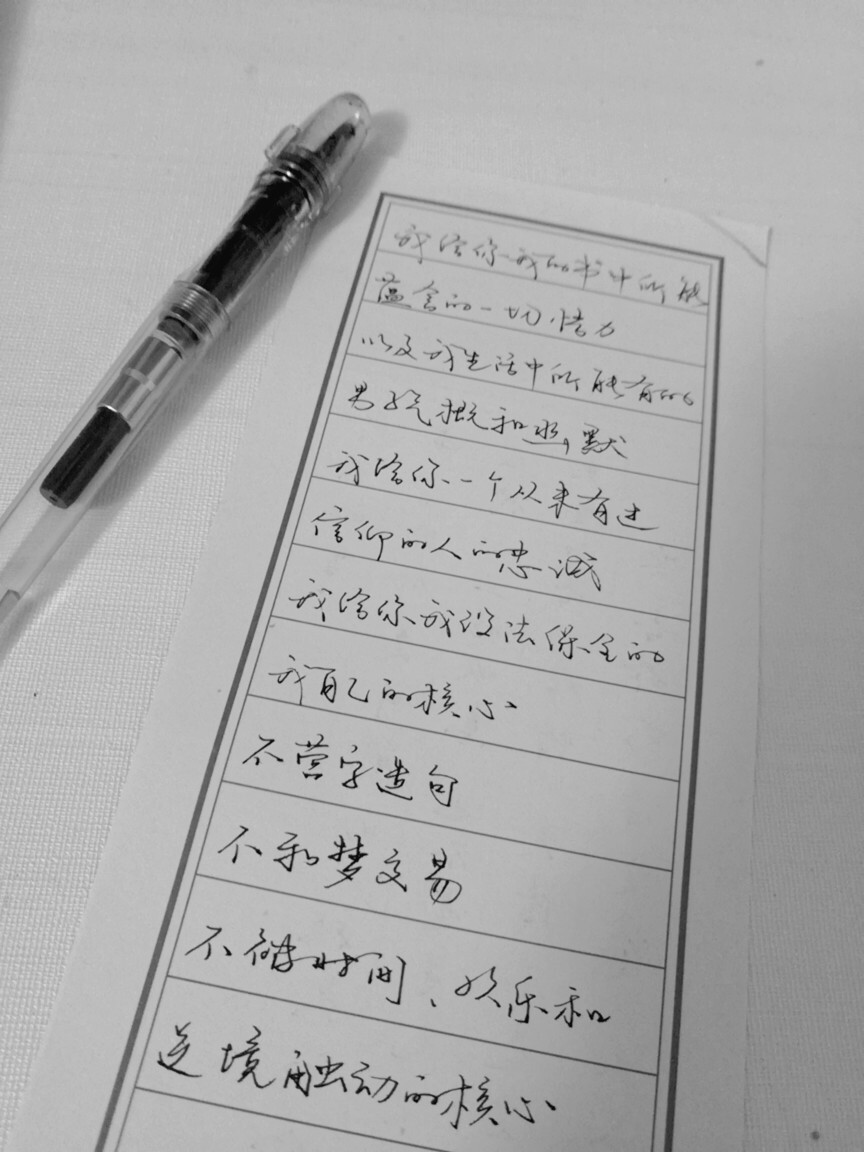 我给你我的书中所能
蕴含的一切悟力
以及我生活中所能有的
男子气概和幽默
我给你一个从未有过
信仰的人的忠诚
我给你我设法保全的
我自己的核心
不营字造句
不和梦交易
不被时间、欢乐和
逆境触动的核心